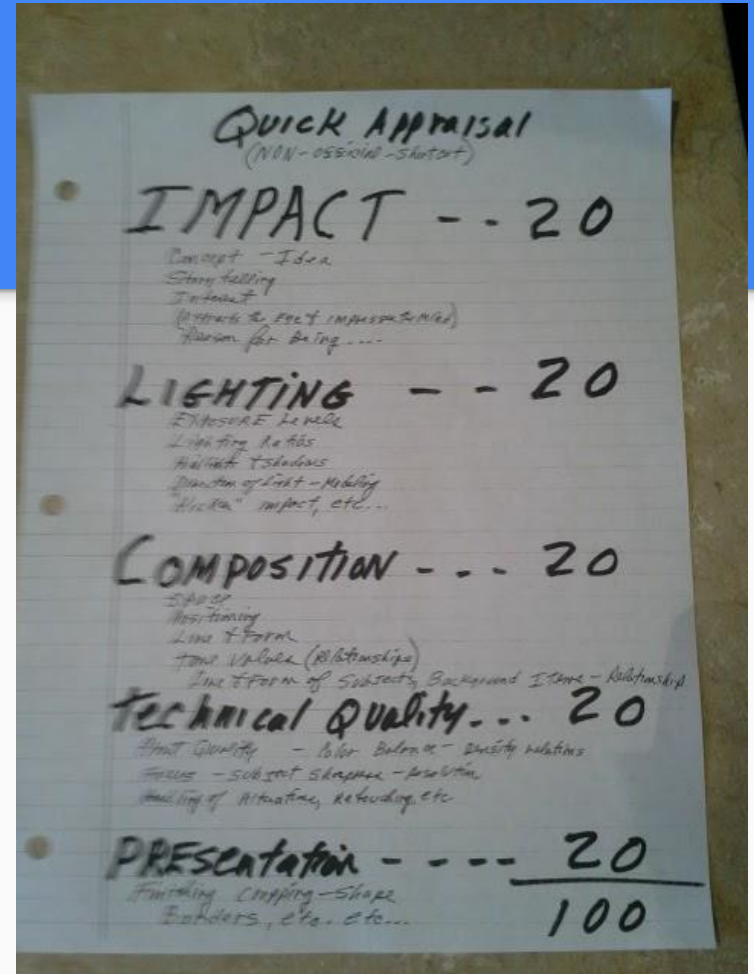 Quick Appraisal
(NON-official-shortcut)
IMPACT - - 20
Concept - Idea
Story telling
Interest
(Attracts the Eye & impresses the Mind)
Reason for Being....
LIGHTING - - 20
EXPOSURE Levels
Lighting Ratios
& Shadows
Direction of Light - Modeling
impact, etc...
COMPOSITION - - - 20
SPACE
Positioning
Line & Form
Tone Values (Relationships)
Line & Form of Subjects, Background Items - Relationship
Technical Quality... 20
Print Quality - Color Balance - Density relations
Focus - Subject Sharpness - Resolution
Handling of Retouching, etc
PRESentation - - - - 20
Finishing Cropping - Shape
Borders, etc. etc...
100